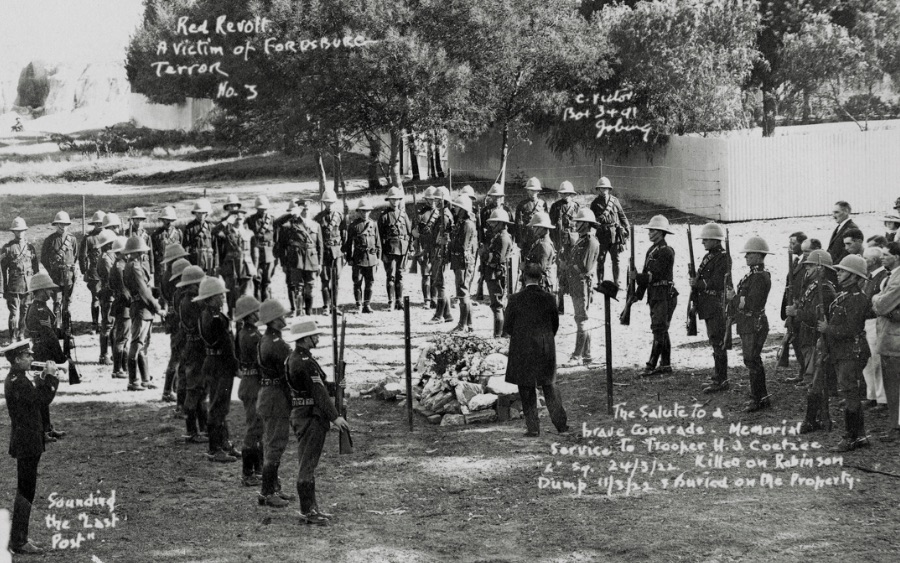 Red Revolt.
A Victim of FORDSBURG
Terror
No. 3
C. Victor
Box 3441
Joburg
The Salute to a
brave Comrade. Memorial
Service to Trooper H.J Coetzee
"A" Sq. 24/3/22 Killed on Robinson
Dump 11/3/22 & buried on the Property.
Sounding
the "Last
Post".